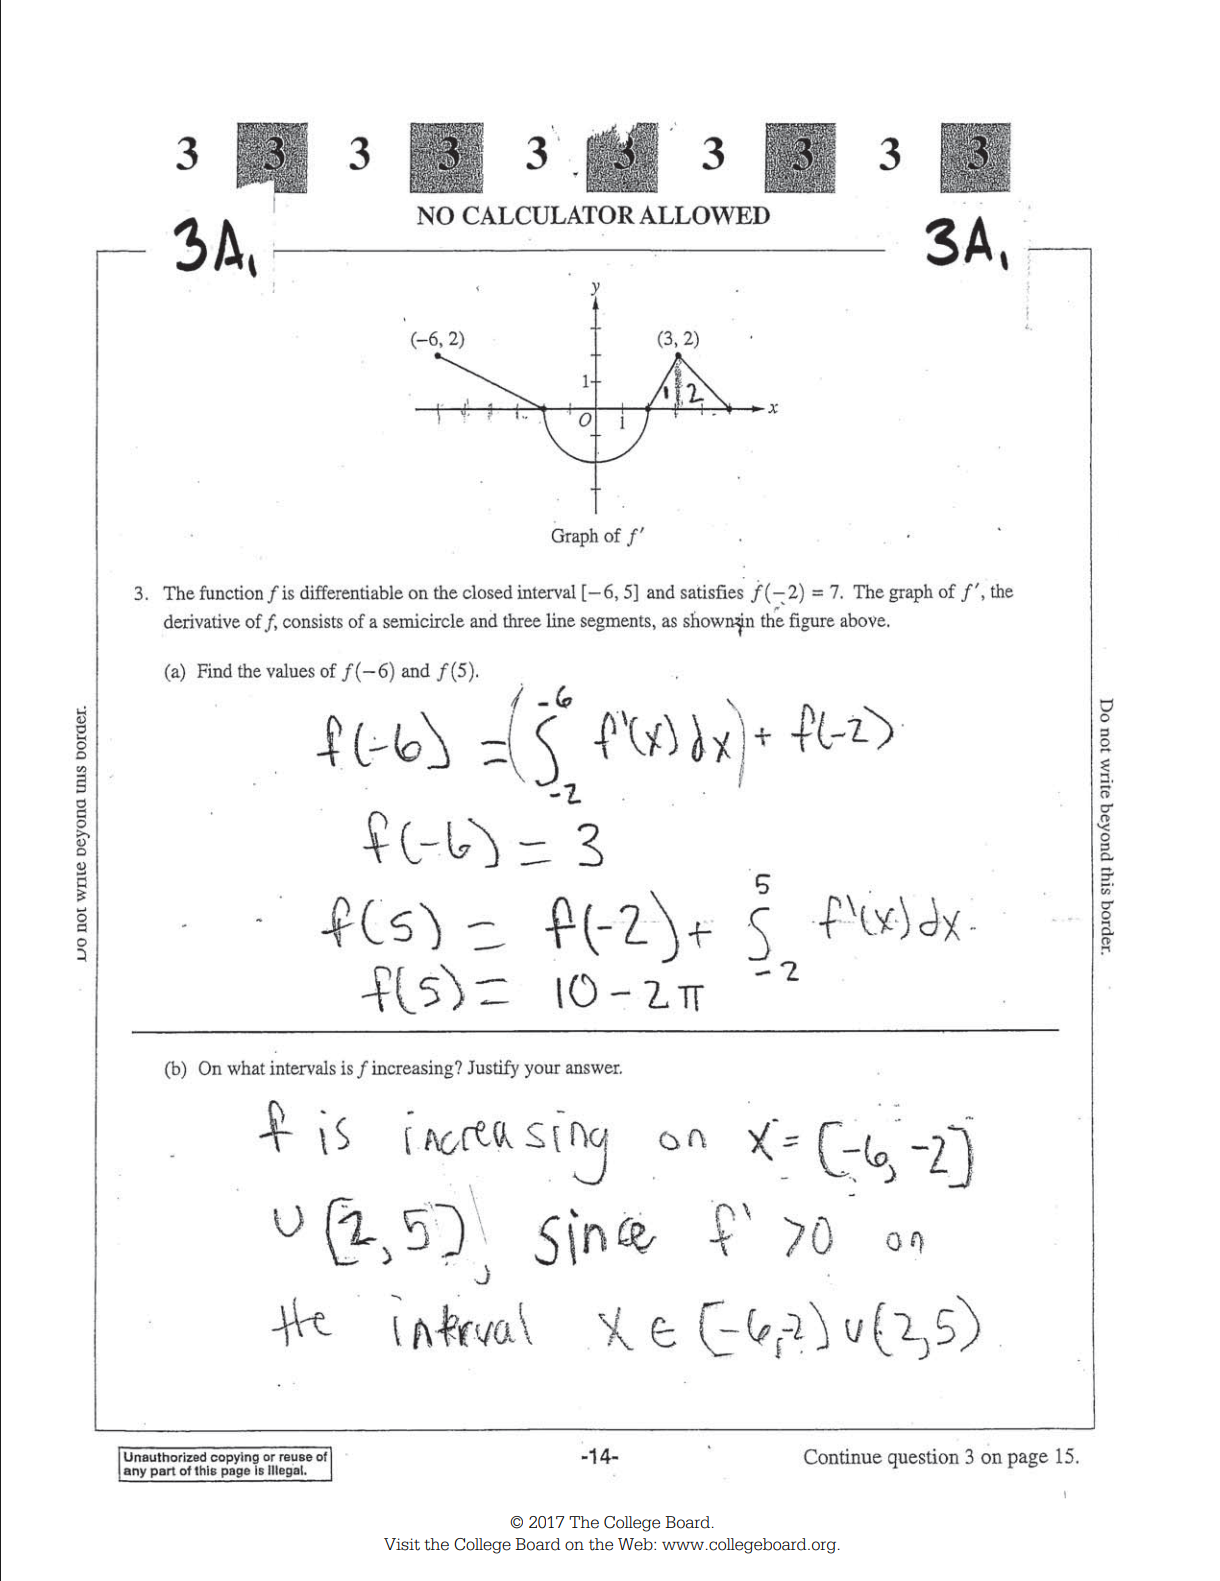 3 3 3 3 3 3 3 3 3 3
NO CALCULATOR ALLOWED
3A1 3A1
y
(−6, 2) (3, 2)
1
1 2
O 1 x
Graph of f′
3. The function f is differentiable on the closed interval [−6, 5] and satisfies f(−2) = 7. The graph of f′, the
derivative of f, consists of a semicircle and three line segments, as shown in the figure above.
(a) Find the values of f(−6) and f(5).
f(-6) = (∫_{-2}^{-6} f'(x)dx) + f(-2)
f(-6) = 3
f(5) = f(-2) + ∫_{-2}^{5} f'(x)dx.
f(5) = 10 - 2π
(b) On what intervals is f increasing? Justify your answer.
f is increasing on x = [-6, -2]
∪ [2, 5], since f' > 0 on
the interval x ∈ [-6,-2) ∪ (2,5)
Do not write beyond this border.
Do not write beyond this border.
Unauthorized copying or reuse of
any part of this page is illegal.
-14-
Continue question 3 on page 15.
© 2017 The College Board.
Visit the College Board on the Web: www.collegeboard.org.